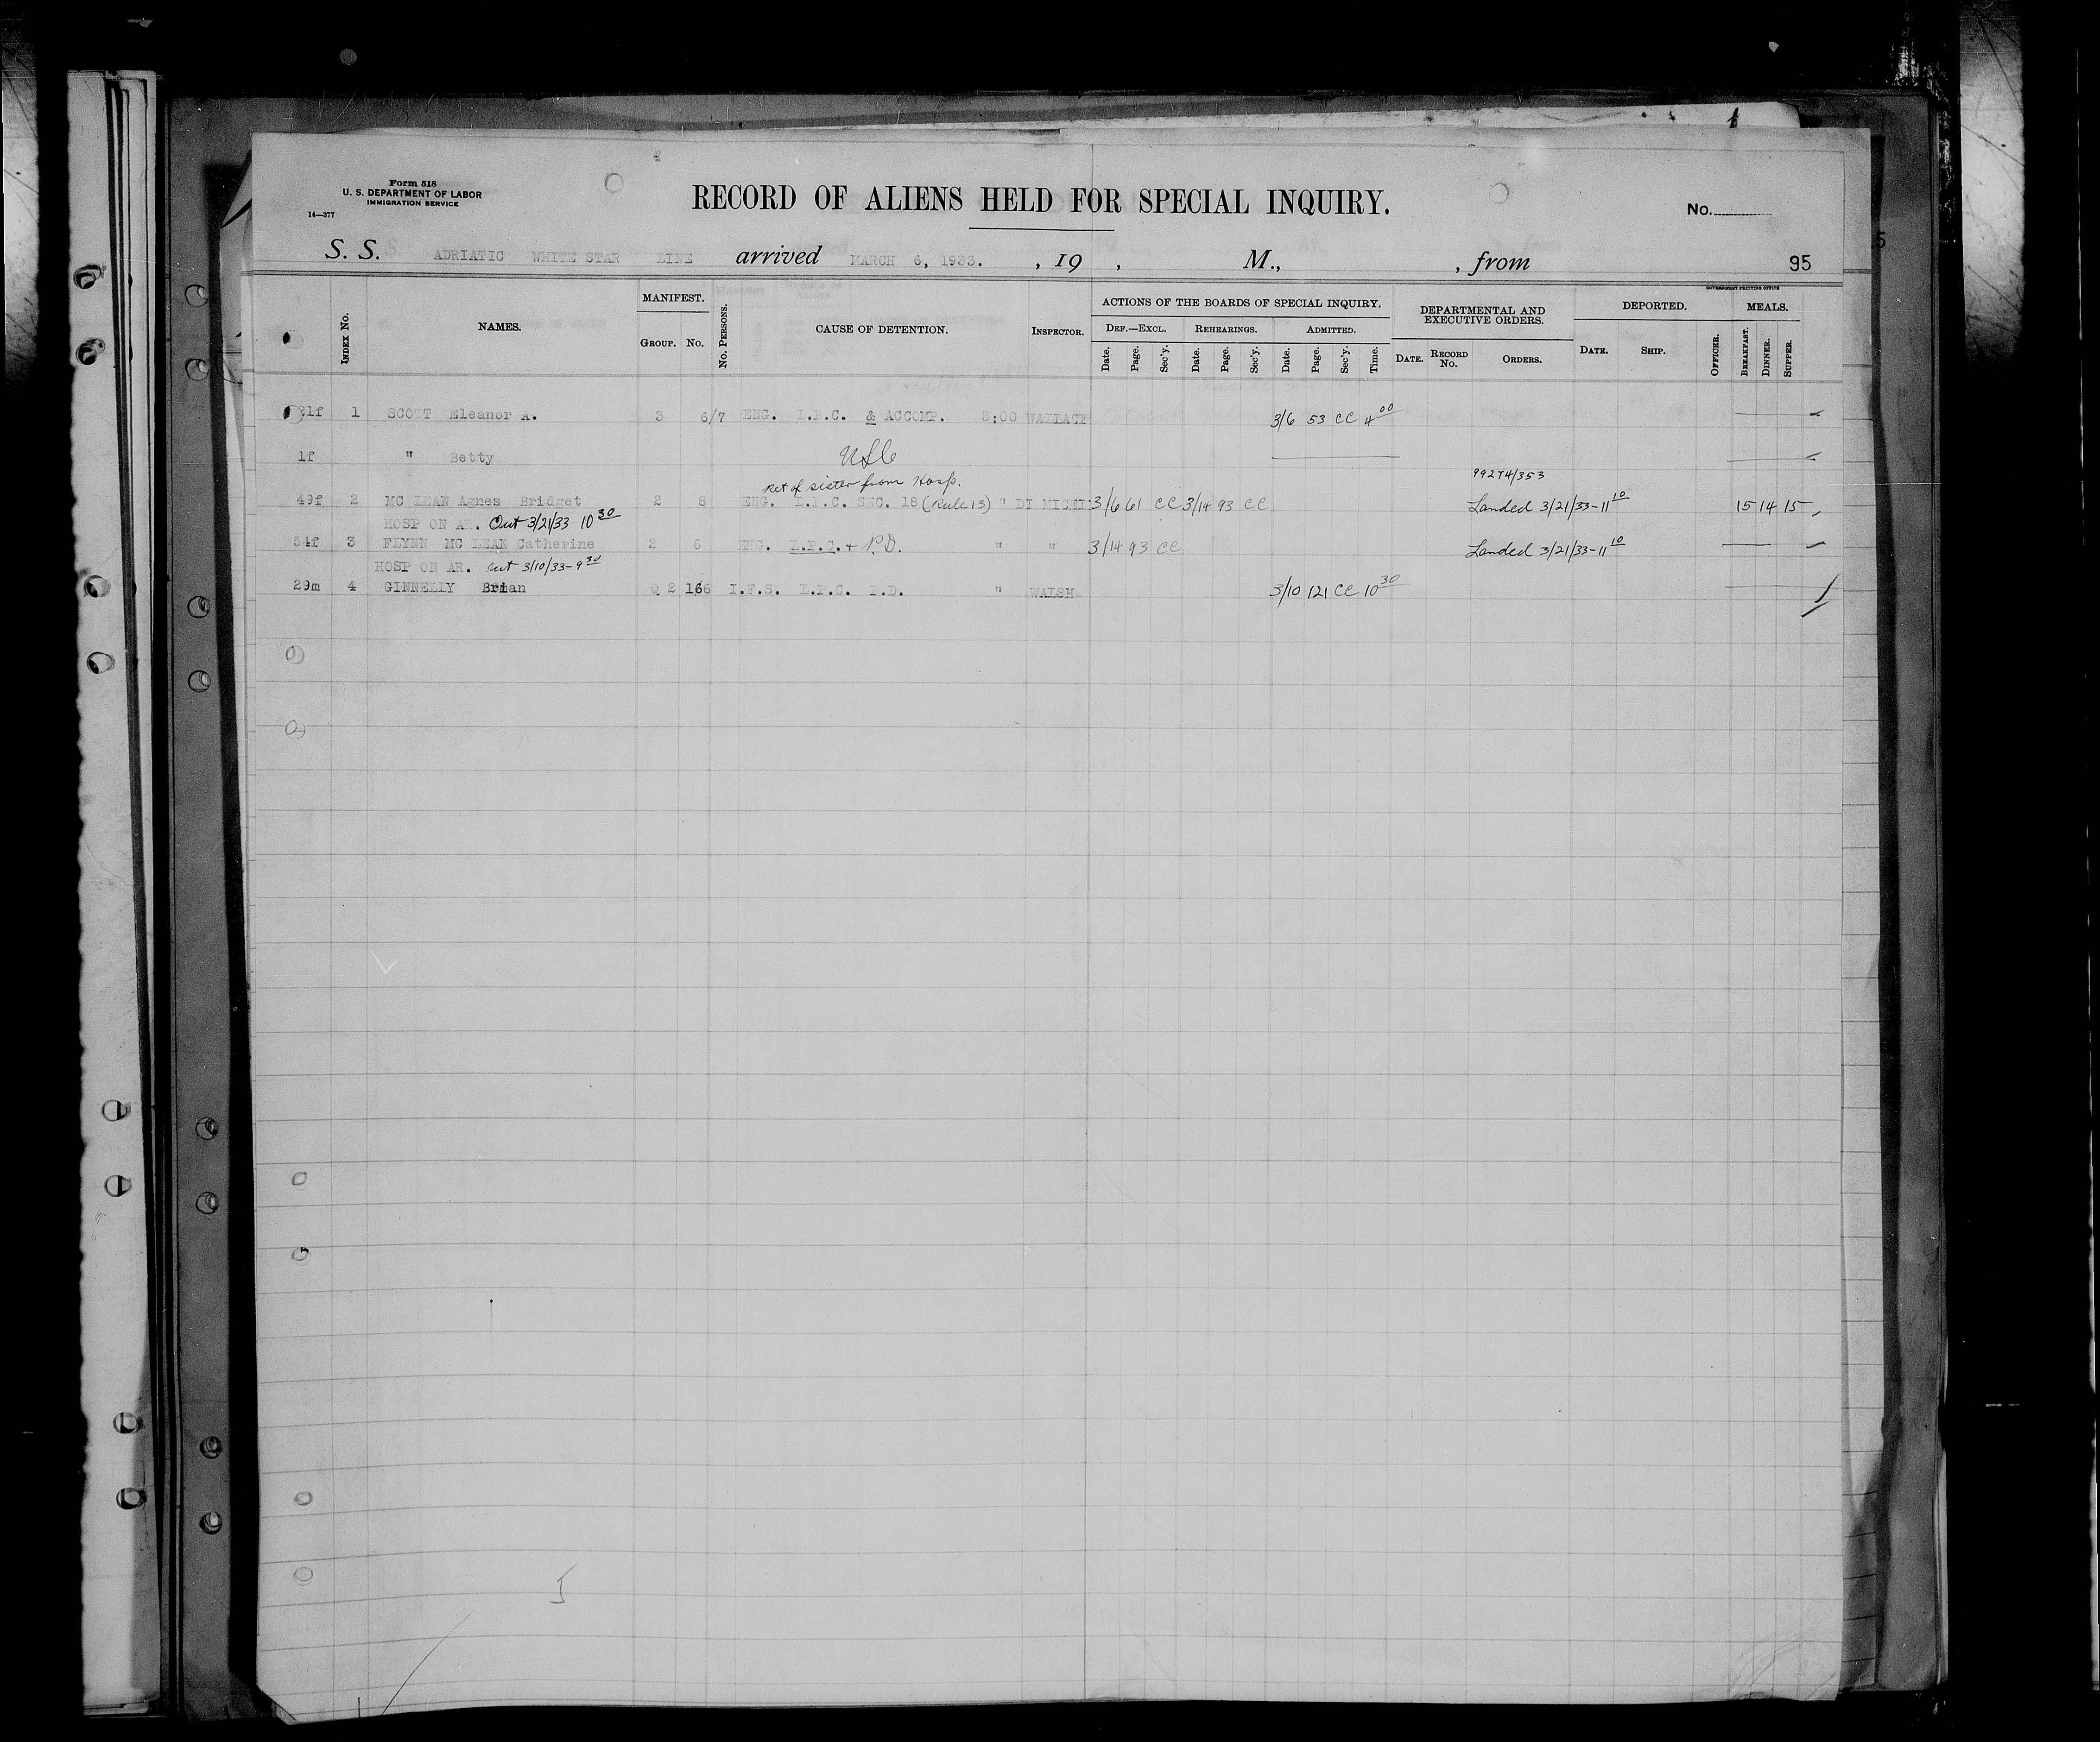 Form 518
U. S. DEPARTMENT OF LABOR
IMMIGRATION SERVICE
14—377
RECORD OF ALIENS HELD FOR SPECIAL INQUIRY.
No.
S. S. ADRIATIC WHITE STAR LINE arrived MARCH 6, 1933. , 19 , M., , from
95
5
GOVERNMENT PRINTING OFFICE
INDEX No. NAMES. MANIFEST. No. PERSONS. CAUSE OF DETENTION. INSPECTOR. ACTIONS OF THE BOARDS OF SPECIAL INQUIRY. DEPARTMENTAL AND EXECUTIVE ORDERS. DEPORTED. OFFICER. MEALS.
GROUP. No. DEF.—EXCL. REHEARINGS. ADMITTED.
Date. Page. Sec'y. Date. Page. Sec'y. Date. Page. Sec'y. Time. DATE. RECORD No. ORDERS. DATE. SHIP. BREAKFAST. DINNER. SUPPER.
1f 1 SCOTT Eleanor A. 3 6/7 ENG. L.P.C. & ACCOMP. 3:00 WALLACE 3/6 53 CC 4 00
1f " Betty
99274/353
Ret of sister from Hosp.
49f 2 MC LEAN Agnes Bridget 2 8 ENG. L.P.C. SEC. 18 (Rule 13) " DI MICELI 3/6 61 CC 3/14 93 CC Landed 3/21/33-11 10 15 14 15
HOSP ON AR. Out 3/21/33 10 30
54f 3 FLYNN MC LEAN Catherine 2 6 ENG. L.P.C. + P.D. " " 3/14 93 CC Landed 3/21/33-11 10
HOSP ON AR. Out 3/10/33-9 30
29m 4 GINNELLY Brian Q 2 166 I.F.S. L.P.C. P.D. " WALSH 3/10 121 CC 10 30